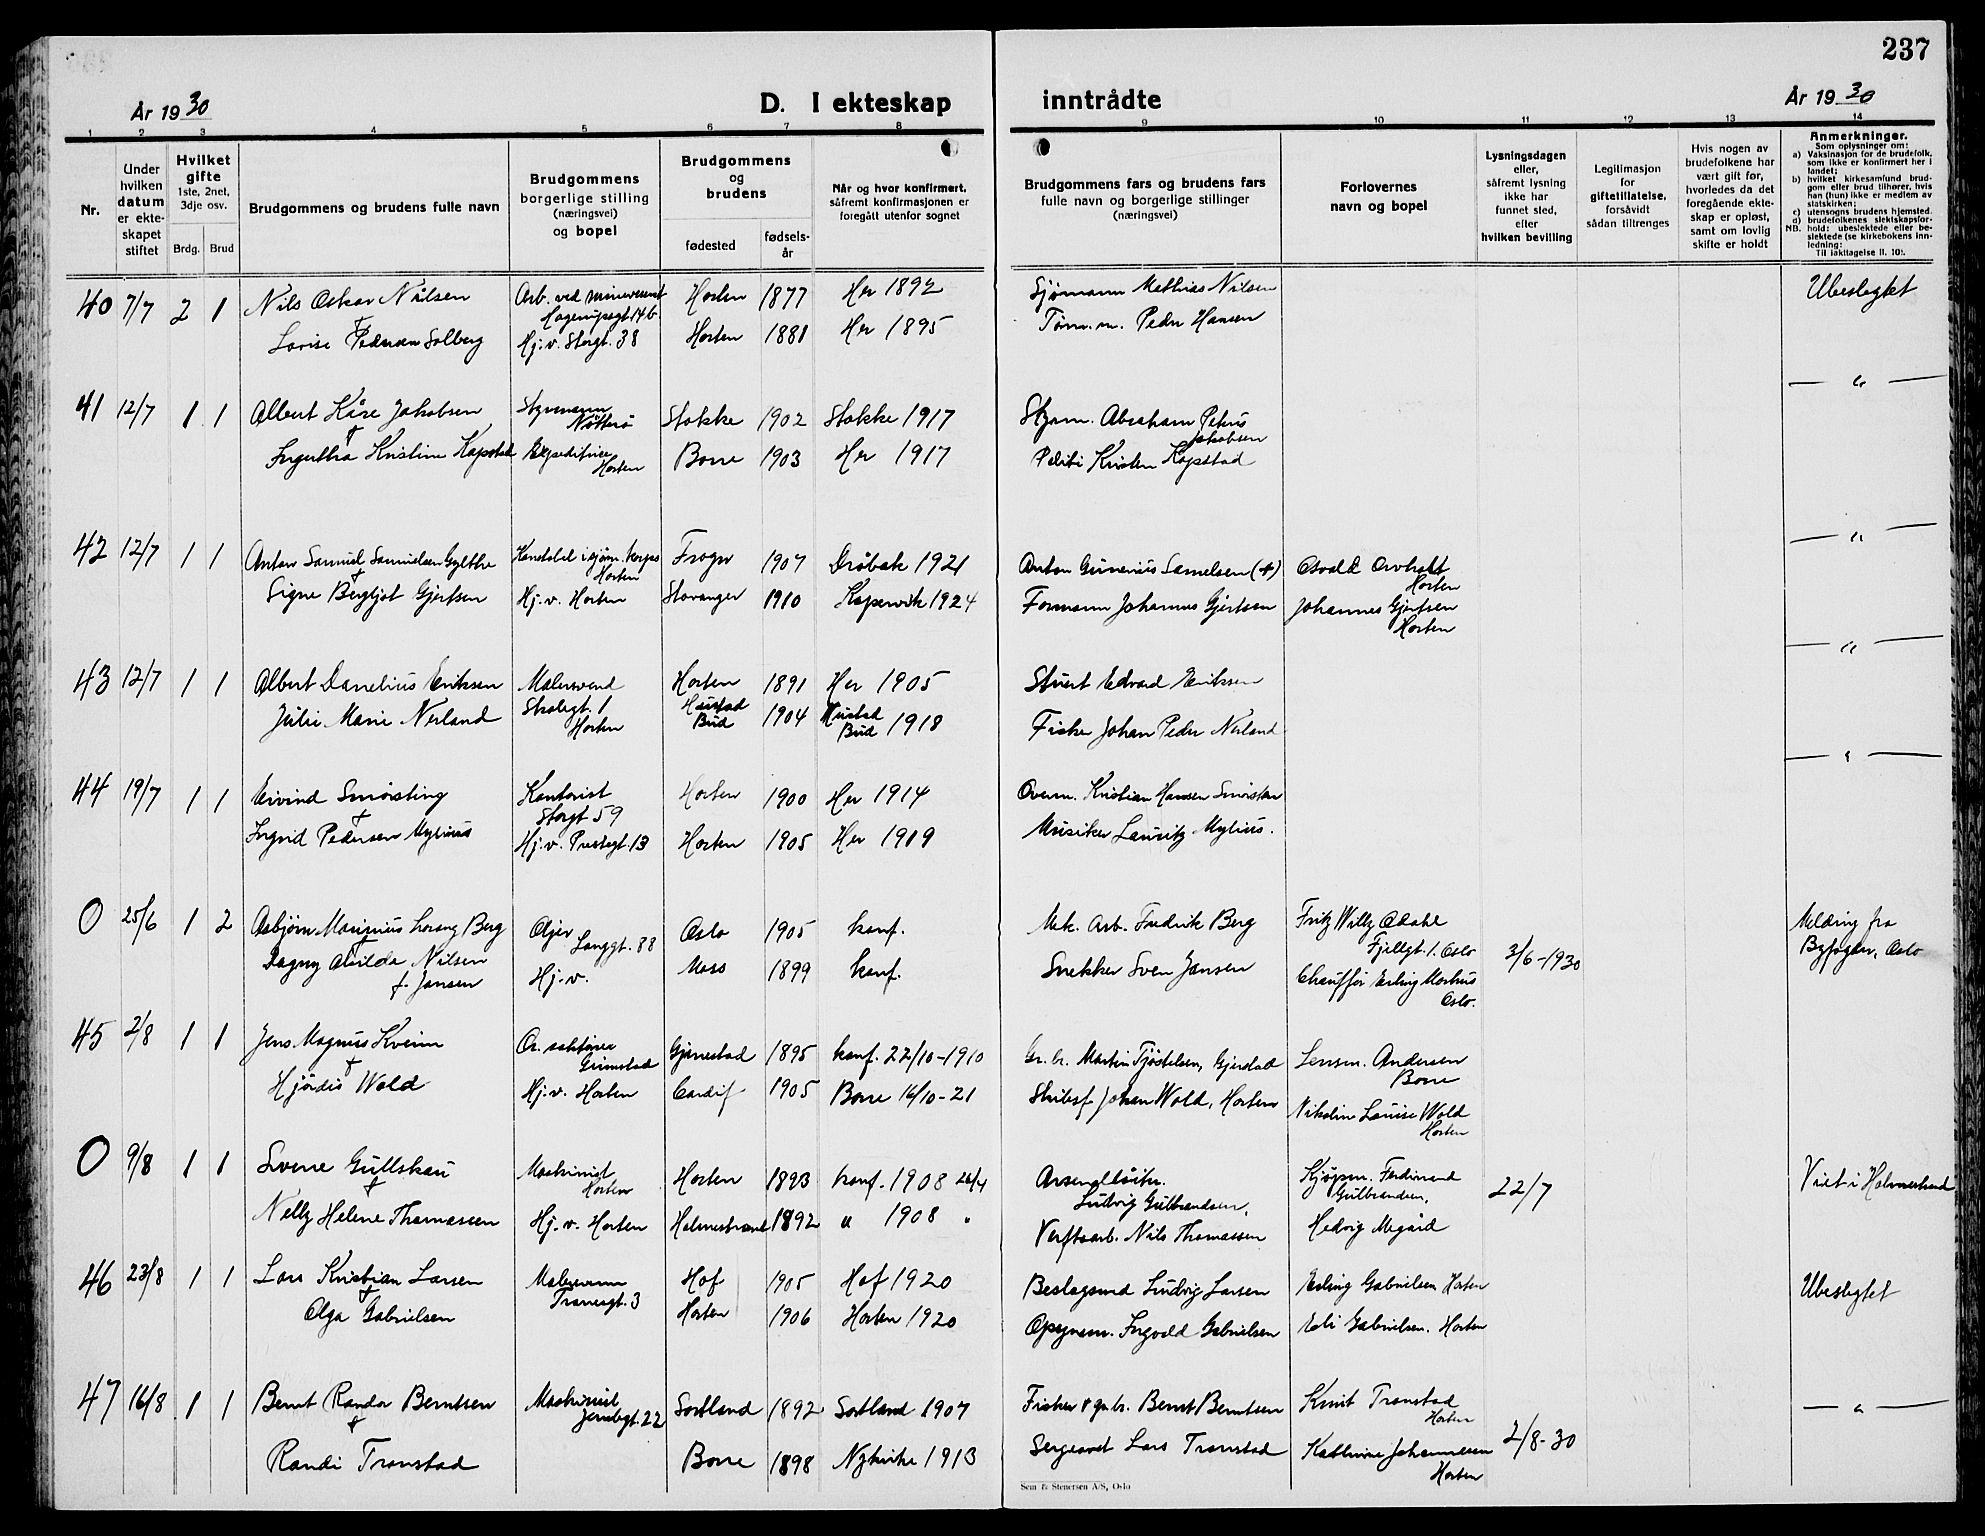 237
År 1930
D. I ekteskap inntrådte
År 1930
1 2 3 4 5 6 7 8 9 10 11 12 13 14
Nr.
Under hvilken datum er ekteskapet stiftet
Hvilket gifte
1ste, 2net, 3dje osv.
Brdg. Brud
Brudgommens og brudens fulle navn
Brudgommens borgerlige stilling (næringsvei) og bopel
Brudgommens og brudens
fødested
fødselsår
Når og hvor konfirmert, såfremt konfirmasjonen er foregått utenfor sognet
Brudgommens fars og brudens fars fulle navn og borgerlige stillinger (næringsvei)
Forlovernes navn og bopel
Lysningsdagen eller, såfremt lysning ikke har funnet sted, efter hvilken bevilling
Legitimasjon for giftetillatelse, forsåvidt sådan tiltrenges
Hvis nogen av brudefolkene har vært gift før, hvorledes da det foregående ekteskap er opløst, samt om lovlig skifte er holdt
Anmerkninger.
Som oplysninger om:
a) Vaksinasjon for de brudefolk, som ikke er konfirmert her i landet;
b) hvilket kirkesamfund brudgom eller brud tilhører, hvis han (hun) ikke er medlem av statskirken;
c) utensogns brudens hjemsted.
d) brudefolkenes slektskapsforhold: ubeslektede eller beslektede (se kirkebokens innledning:
NB. Til iakttagelse ll. 10).
40 7/7 2 1 Nils Oskar Nilsen Arb. ved minevesenet Hagerupsgt. 14 b. Horten 1877 Her 1892 Sjømann Mathias Nilsen Ubeslegtet
+
Lovise Pedersen Solberg Hj. v. Storgt. 38 Horten 1881 Her 1895 Tøm.m. Peder Hansen
41 12/7 1 1 Albert Kåre Jakobsen Styrmann Nøtterø Stokke 1902 Stokke 1917 Styrm. Abraham Petrus Jakobsen — " —
+
Ingertha Kristine Kapstad Ekspeditrice Horten Borre 1903 Her 1917 Politi Kristen Kapstad
42 12/7 1 1 Anton Samuel Samuelsen Gylthe Konstabel i sjøm. korps Horten Frogn 1907 Drøbak 1921 Anton Gunerius Samelsen (+) Osvald Orvholt Horten — " —
+
Signe Bergljot Gjertsen Hj. v. Horten Stavanger 1910 Kopervik 1924 Formann Johannes Gjertsen Johannes Gjertsen Horten
43 12/7 1 1 Albert Danelius Eriksen Malersvend Horten 1891 Her 1905 Stuert Edvard Eriksen — " —
Julie Marie Nerland Skolegt. 1 Horten Hustad Bud 1904 Hustad Bud 1918 Fisker Johan Peder Nerland
44 19/7 1 1 Eivind Smørsting Kontorist Storgt 59 Horten 1900 Her 1914 Overm. Kristian Hansen — " —
+
Ingrid Pedersen Mylius Hj. v. Prestegt. 13 Horten 1905 Her 1919 Musiker Lauritz Mylius.
0 25/6 1 2 Asbjørn Marinius Berg Langgt. 88 Oslo 1905 konf. Mek. Arb. Fredrik Berg Fritz Willy Fjellgt. 1. Oslo 3/6-1930 Melding fra Byfogden, Oslo
+
Dagny Alvilda Nilsen f. Jansen Hj. v. Moss 1899 konf. Snekker Sven Jansen Chauffør Erling Oslo.
45 2/8 1 1 Jens Magnus Kveim Grimstad Gjerrestad 1895 konf. 22/10-1910 Gr. br. Martin Tjøstelsen, Gjerstad Lensm. Andersen Borre
+
Hjørdis Wold Hj. v. Horten Cardif 1905 Borre 16/10-21 Johan Wold, Horten Nikoline Louise Wold Horten
0 9/8 1 1 Sverre Gullskau Maskinist Horten Horten 1893 konf. 1908 26/4 Ludvig Gulbrandsen, Kjøpm. Ferdinand Gulbrandsen, 22/7 Viet i Holmestrand
+
Nelly Helene Thomassen Hj. v. Horten Holmestrand 1892 " 1908 " Verftsarb. Nils Thomassen Hedvig
46 23/8 1 1 Lars Kristian Larsen Tranesgt. 3 Hof 1905 Hof 1920 Beslagsmed Ludvig Larsen Erling Gabrielsen Horten Ubeslegtet
+
Olga Gabrielsen Horten 1906 Horten 1920 Opsynsm. Ingvald Gabrielsen Gabrielsen. Horten
47 16/8 1 1 Bernt Randor Berntsen Maskinist 22 Sortland 1892 Sortland 1907 Fisker & gr. br. Bernt Berntsen Knut Transtad Horten 2/8-30 — " —
+
Randi Tronstad Borre 1898 Nykirke 1913 Sergeant Lars Tronstad Kathrine Johannesen Horten
Sem & Stenersen A/S, Oslo